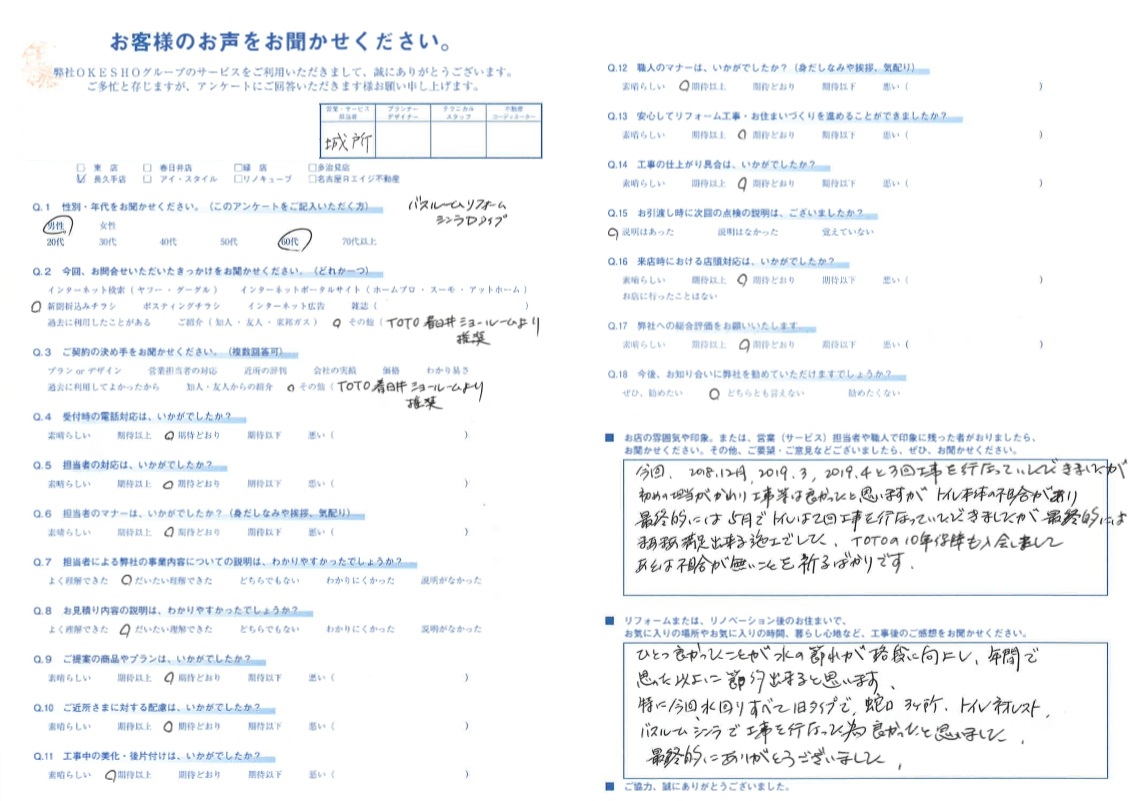 お客様のお声をお聞かせください。
弊社OKESHOグループのサービスをご利用いただきまして、誠にありがとうございます。
ご多忙と存じますが、アンケートにご回答いただきます様お願い申し上げます。
営業・サービス担当者 プランナーデザイナー テクニカルスタッフ 不動産コーディネーター
城所
□ 東 店 □ 春日井店 □緑 店 □多治見店
☑ 長久手店 □ アイ・スタイル □リノキューブ □名古屋Rエイジ不動産
Q.1 性別・年代をお聞かせください。(このアンケートをご記入いただく方)
バスルームリフォーム
シンラDタイプ
男性 女性
20代 30代 40代 50代 60代 70代以上
Q.2 今回、お問合せいただいたきっかけをお聞かせください。(どれか一つ)
インターネット検索(ヤフー・グーグル) インターネットポータルサイト(ホームプロ・スーモ・アットホーム)
○新聞折込みチラシ ポスティングチラシ インターネット広告 雑誌( )
過去に利用したことがある ご紹介(知人・友人・東邦ガス) ○その他(TOTO春日井ショールームより
推奨
Q.3 ご契約の決め手をお聞かせください。(複数回答可)
プラン or デザイン 営業担当者の対応 近所の評判 会社の実績 価格 わかり易さ
過去に利用してよかったから 知人・友人からの紹介 ○その他(TOTO春日井ショールームより
推奨
Q.4 受付時の電話対応は、いかがでしたか?
素晴らしい 期待以上 ○期待どおり 期待以下 悪い( )
Q.5 担当者の対応は、いかがでしたか?
素晴らしい 期待以上 ○期待どおり 期待以下 悪い( )
Q.6 担当者のマナーは、いかがでしたか?(身だしなみや挨拶、気配り)
素晴らしい 期待以上 ○期待どおり 期待以下 悪い( )
Q.7 担当者による弊社の事業内容についての説明は、わかりやすかったでしょうか?
よく理解できた ○だいたい理解できた どちらでもない わかりにくかった 説明がなかった
Q.8 お見積り内容の説明は、わかりやすかったでしょうか?
よく理解できた ○だいたい理解できた どちらでもない わかりにくかった 説明がなかった
Q.9 ご提案の商品やプランは、いかがでしたか?
素晴らしい 期待以上 ○期待どおり 期待以下 悪い( )
Q.10 ご近所さまに対する配慮は、いかがでしたか?
素晴らしい 期待以上 ○期待どおり 期待以下 悪い( )
Q.11 工事中の美化・後片付けは、いかがでしたか?
素晴らしい ○期待以上 期待どおり 期待以下 悪い( )
Q.12 職人のマナーは、いかがでしたか?(身だしなみや挨拶、気配り)
素晴らしい ○期待以上 期待どおり 期待以下 悪い( )
Q.13 安心してリフォーム工事・お住まいづくりを進めることができましたか?
素晴らしい 期待以上 ○期待どおり 期待以下 悪い( )
Q.14 工事の仕上がり具合は、いかがでしたか?
素晴らしい 期待以上 ○期待どおり 期待以下 悪い( )
Q.15 お引渡し時に次回の点検の説明は、ございましたか?
○説明はあった 説明はなかった 覚えていない
Q.16 来店時における店頭対応は、いかがでしたか?
素晴らしい 期待以上 ○期待どおり 期待以下 悪い( )
お店に行ったことはない
Q.17 弊社への総合評価をお願いいたします
素晴らしい 期待以上 ○期待どおり 期待以下 悪い( )
Q.18 今後、お知り合いに弊社を勧めていただけますでしょうか?
ぜひ、勧めたい ○どちらとも言えない 勧めたくない
■ お店の雰囲気や印象。または、営業(サービス)担当者や職人で印象に残った者がおりましたら、
お聞かせください。その他、ご要望・ご意見などございましたら、ぜひ、お聞かせください。
今回、2018.12月、2019.3、2019.4と3回工事を行なっていただきましたが
初めの担当がかわり工事等は良かったと思いますが トイレ本体の不具合があり
最終的には5月でトイレは2回工事を行なっていただきましたが 最終的には
まあまあ満足出来る施工でした、TOTOの10年保障も入会しまして
あとは不具合が無いことを祈るばかりです.
■ リフォームまたは、リノベーション後のお住まいで、
お気に入りの場所やお気に入りの時間、暮らし心地など、工事後のご感想をお聞かせください。
ひとつ良かったことが水の節水が格段に向上し、年間で
思った以上に節約出来ると思います、
特に今回水回りすべて旧タイプで、蛇口 3ヶ所、トイレネオレスト、
バスルームシンラで工事を行なった為良かったと思いました、
最終的にありがとうございました、
■ ご協力、誠にありがとうございました。